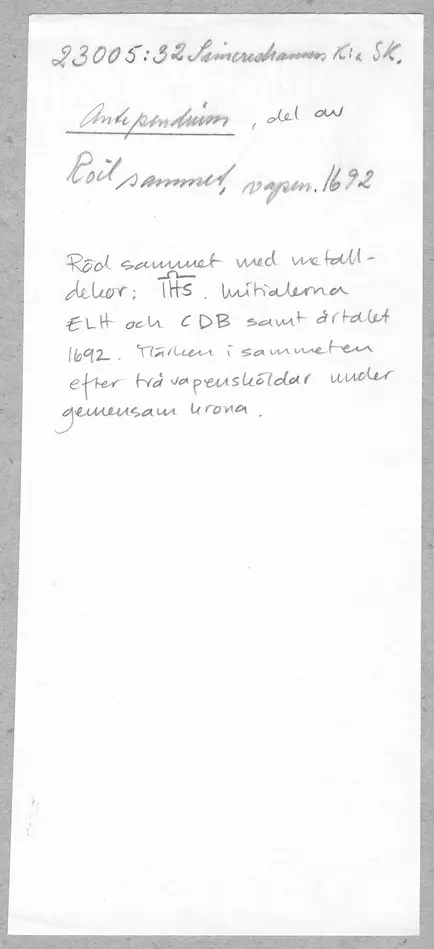 23005:32 Simrishamns K:a SK.
Antependium, del av
Röd sammet, vapen. 1692
Röd sammet med metall-
dekor; IHS. Initialerna
ELH och CDB samt årtalet
1692. Märken i sammeten
efter två vapensköldar under
gemensam krona.